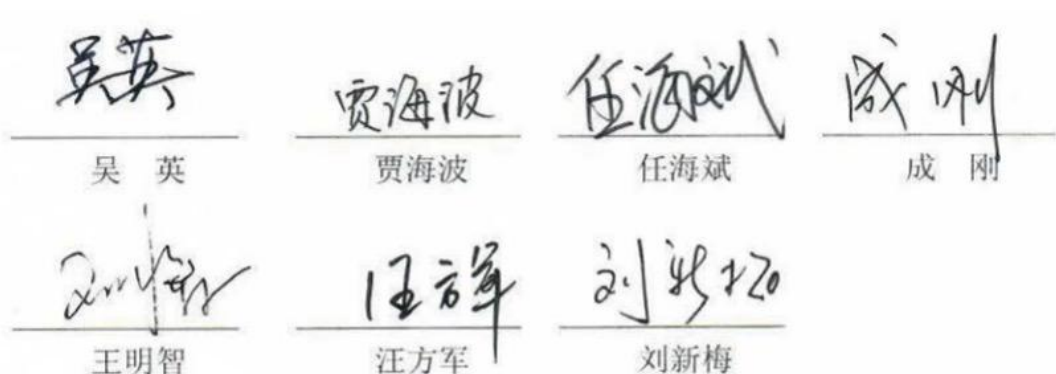 吴英 贾海波 任海斌 成刚
吴 英 贾海波 任海斌 成 刚
汪方军 刘新梅
王明智 汪方军 刘新梅